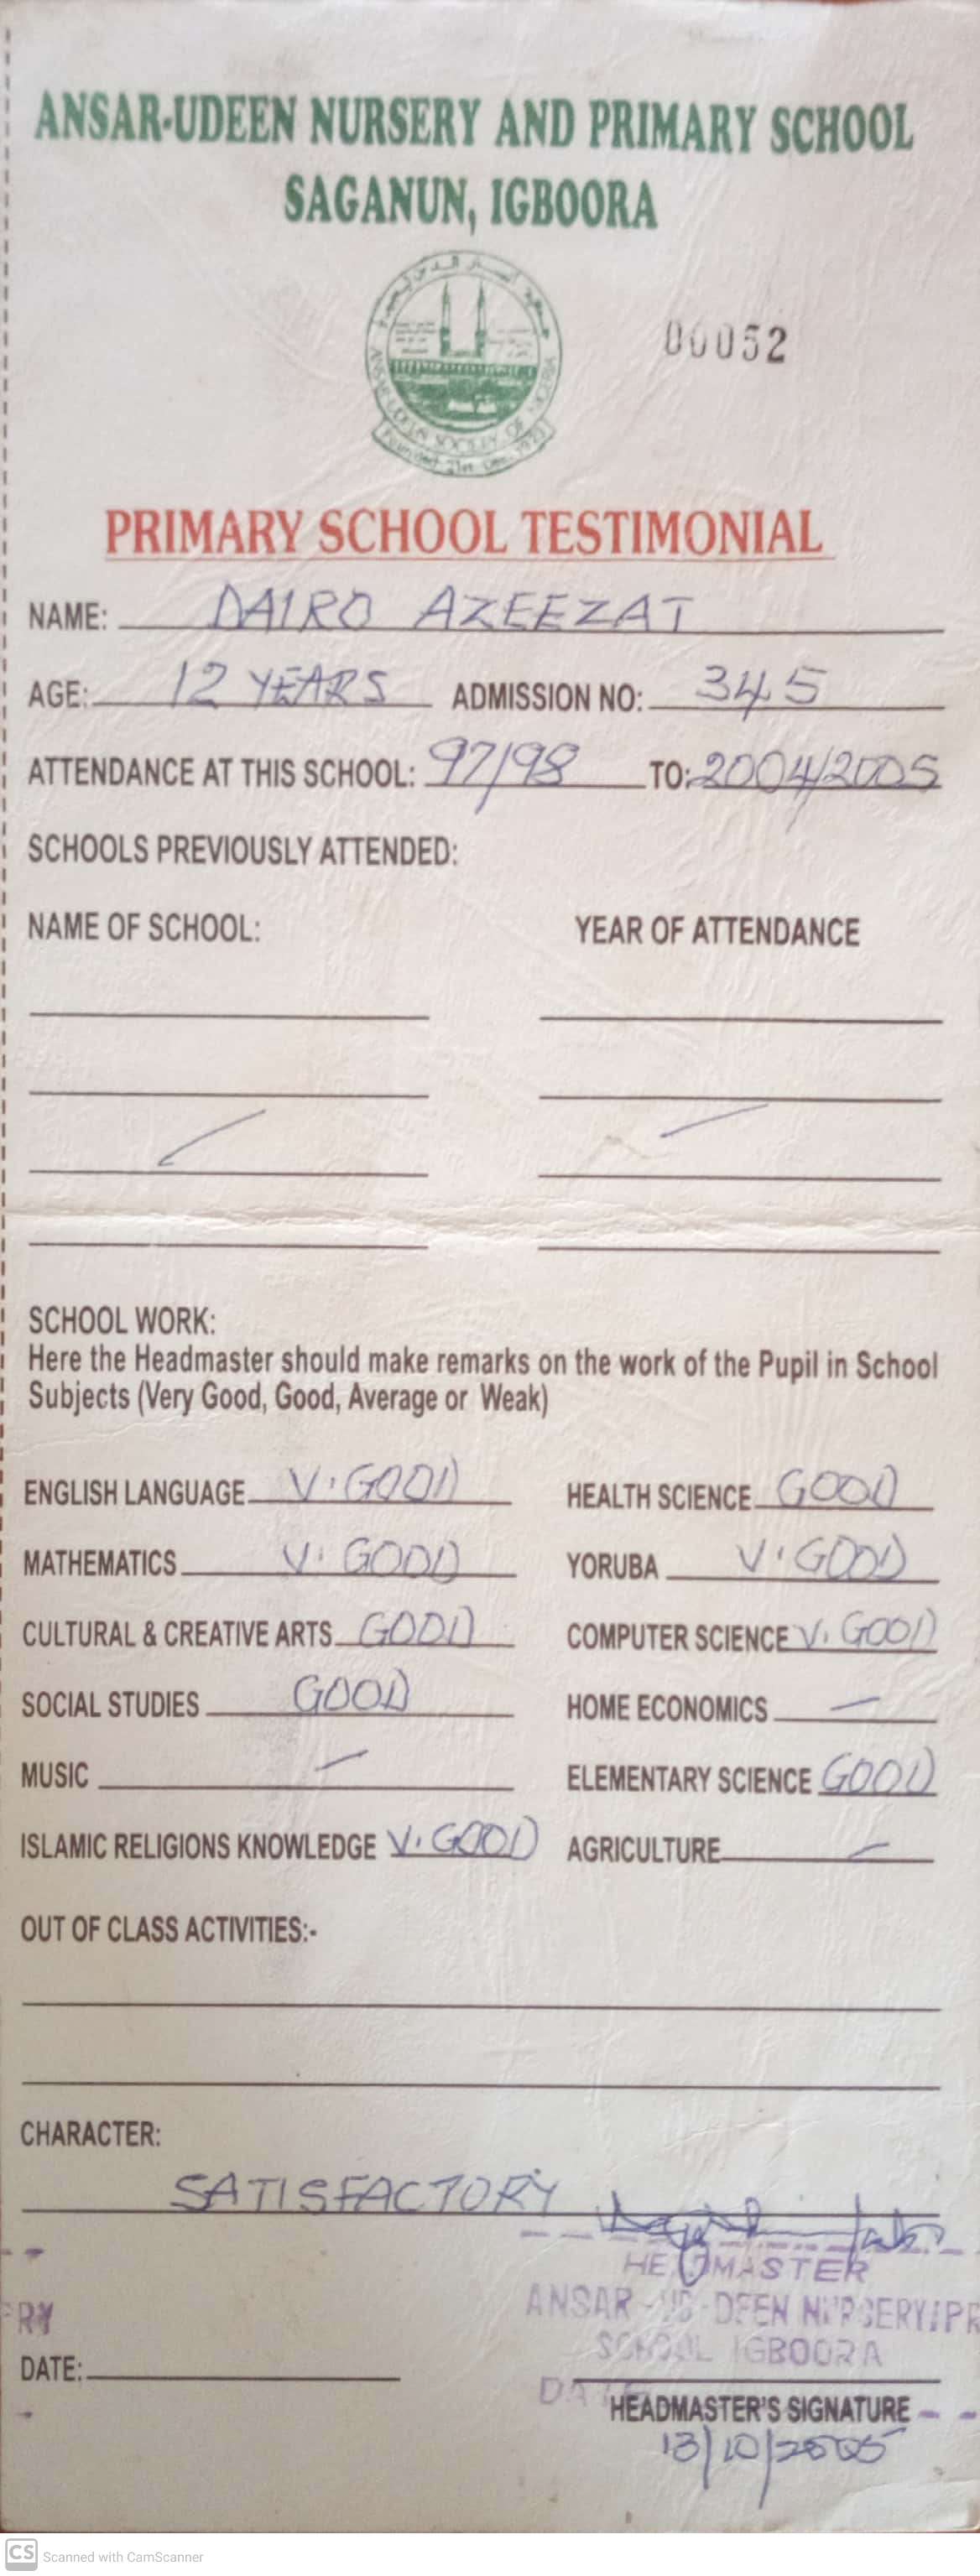 ANSAR-UDEEN NURSERY AND PRIMARY SCHOOL
SAGANUN, IGBOORA
ANSAR-UDEEN SOCIETY OF NIGERIA
Founded 21st Dec. 1923
00052
PRIMARY SCHOOL TESTIMONIAL
NAME: DAIRO AZEEZAT
AGE: 12 YEARS ADMISSION NO: 345
ATTENDANCE AT THIS SCHOOL: 97/98 TO: 2004/2005
SCHOOLS PREVIOUSLY ATTENDED:
NAME OF SCHOOL: YEAR OF ATTENDANCE
SCHOOL WORK:
Here the Headmaster should make remarks on the work of the Pupil in School
Subjects (Very Good, Good, Average or Weak)
ENGLISH LANGUAGE V. GOOD HEALTH SCIENCE GOOD
MATHEMATICS V. GOOD YORUBA V. GOOD
CULTURAL & CREATIVE ARTS GOOD COMPUTER SCIENCE V. GOOD
SOCIAL STUDIES GOOD HOME ECONOMICS —
MUSIC — ELEMENTARY SCIENCE GOOD
ISLAMIC RELIGIONS KNOWLEDGE V. GOOD AGRICULTURE —
OUT OF CLASS ACTIVITIES:-
CHARACTER:
SATISFACTORY
HEADMASTER
ANSAR-UD-DEEN NURSERY/PR
RY
SCHOOL IGBOORA
DATE:
DATE
HEADMASTER'S SIGNATURE
13/10/2005
CS Scanned with CamScanner